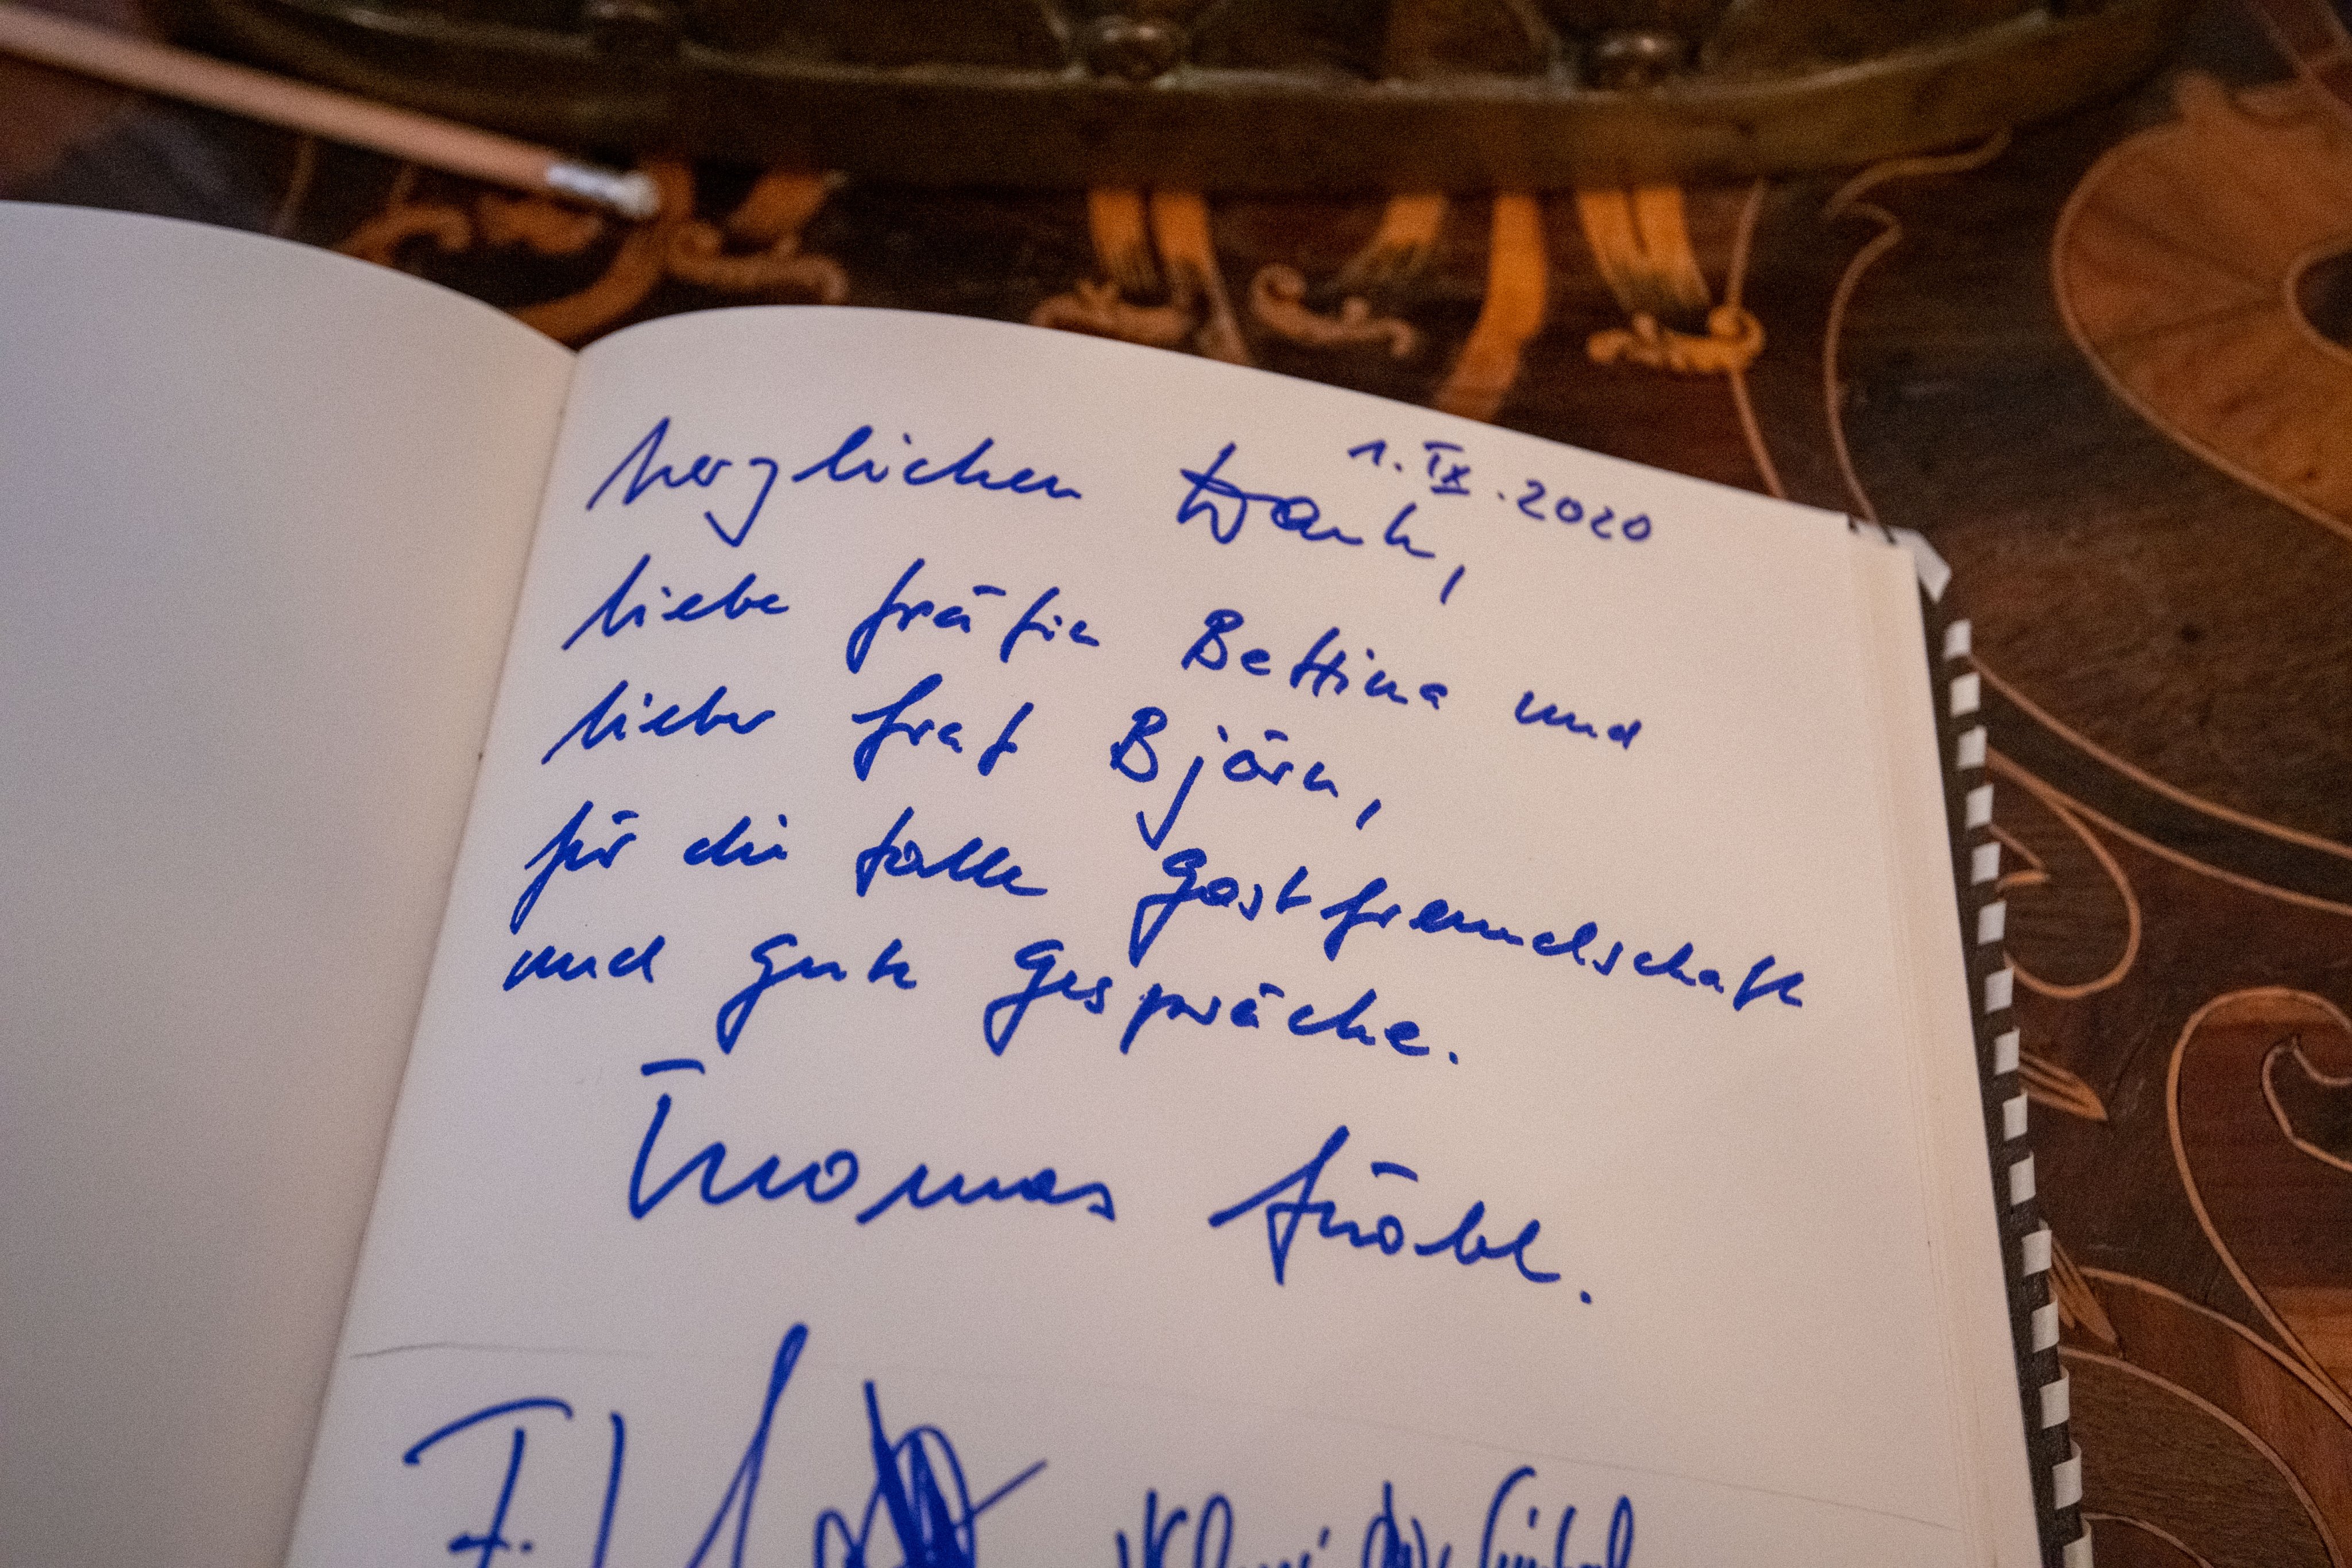 1. IX. 2020
herzlichen Dank,
liebe Gräfin Bettina und
lieber Graf Björn,
für die tolle Gastfreundschaft
und gute Gespräche.
Thomas Ströbl.